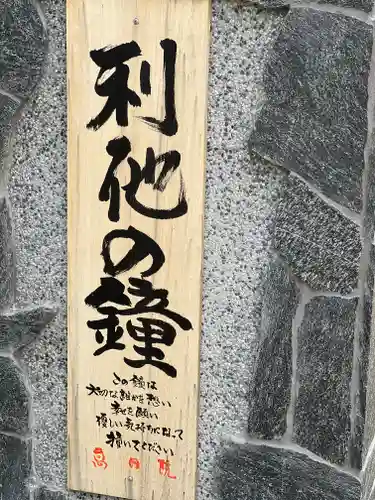 利他の鐘
この鐘は
大切な誰かを想い
幸せを願い
優しい気持ちになって
撞いてください